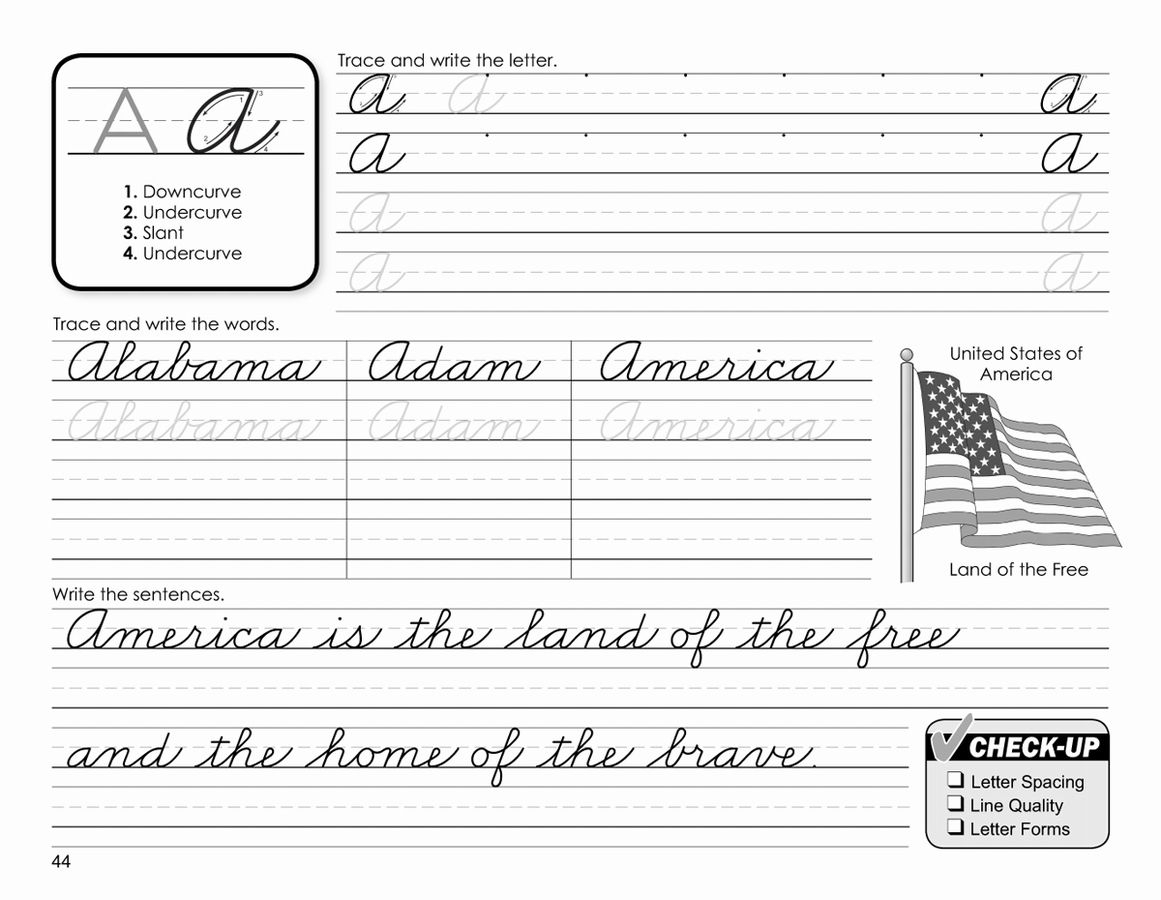 A a
1
3
2
4
1. Downcurve
2. Undercurve
3. Slant
4. Undercurve
Trace and write the letter.
a a a
a a
a a
a a
Trace and write the words.
Alabama Adam America
Alabama Adam America
United States of
America
Land of the Free
Write the sentences.
America is the land of the free
and the home of the brave.
CHECK-UP
Letter Spacing
Line Quality
Letter Forms
44